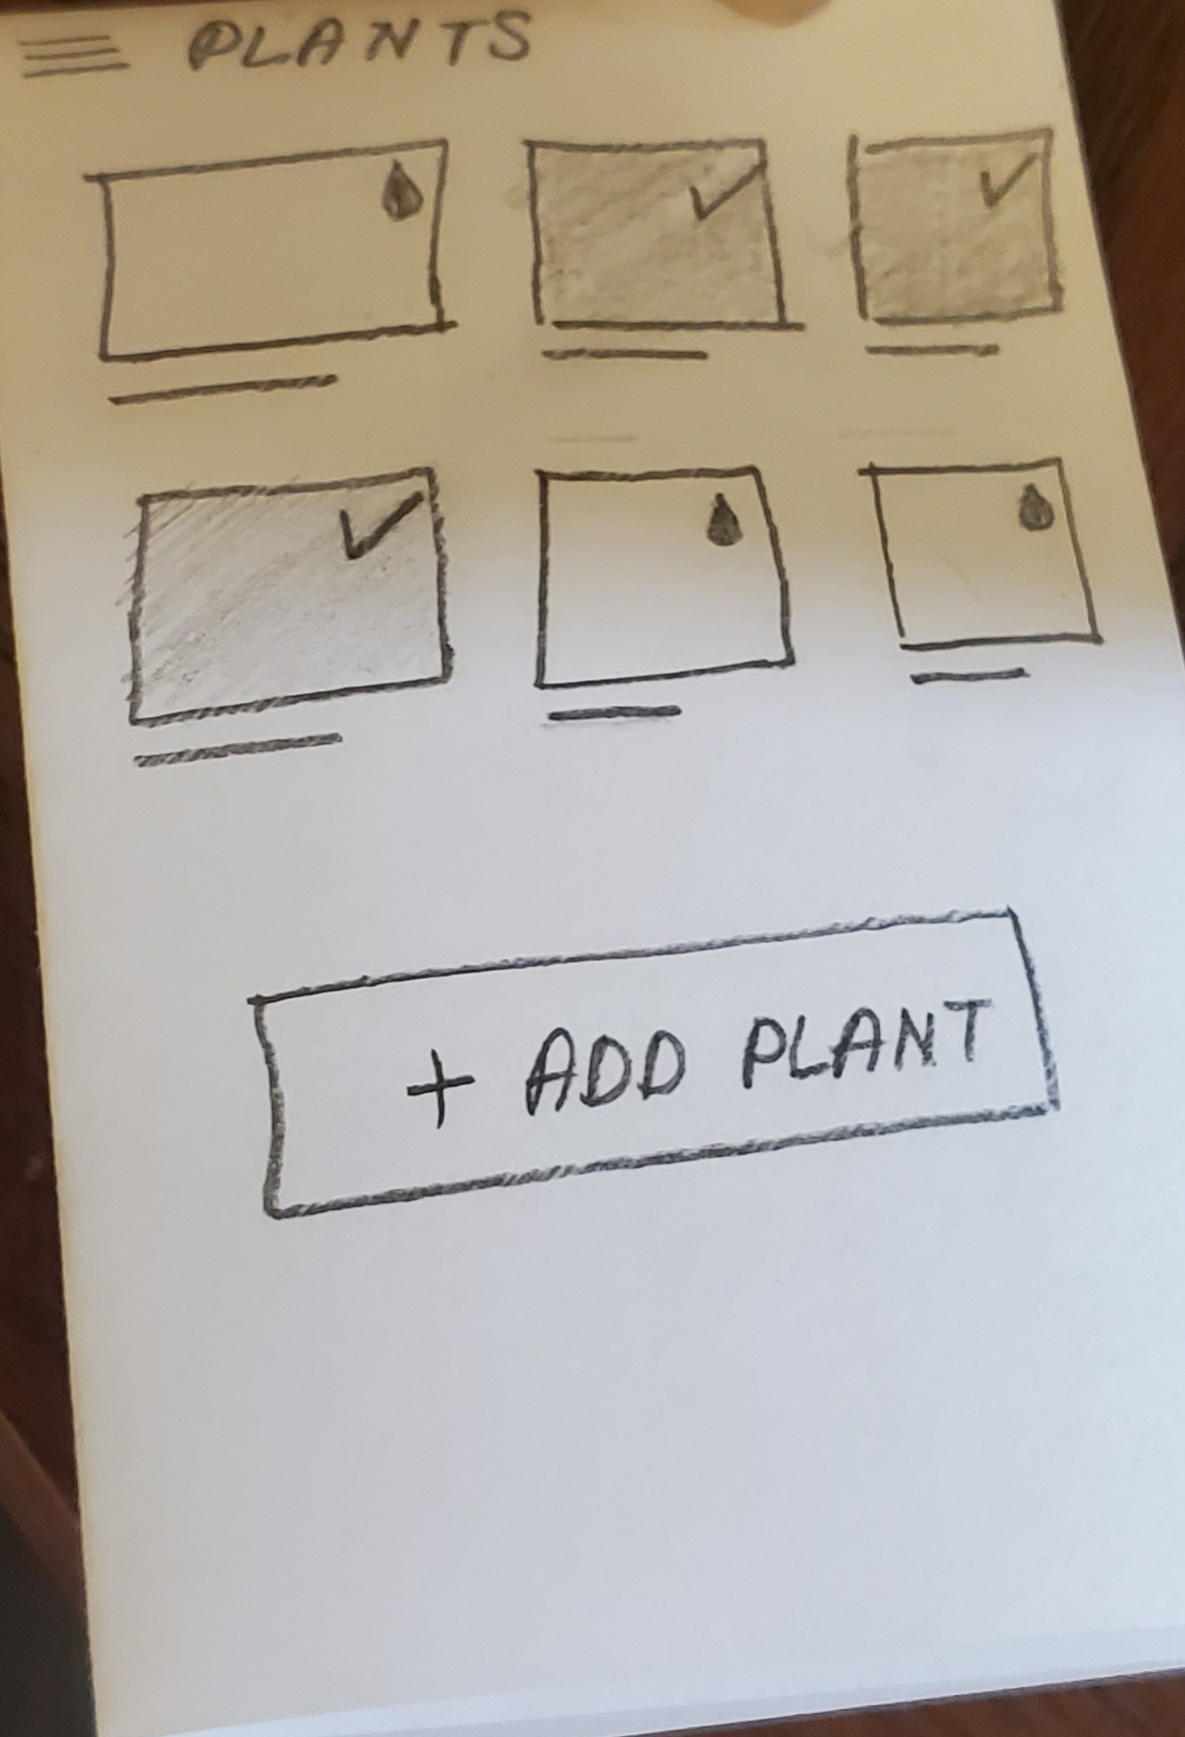 PLANTS
+ ADD PLANT